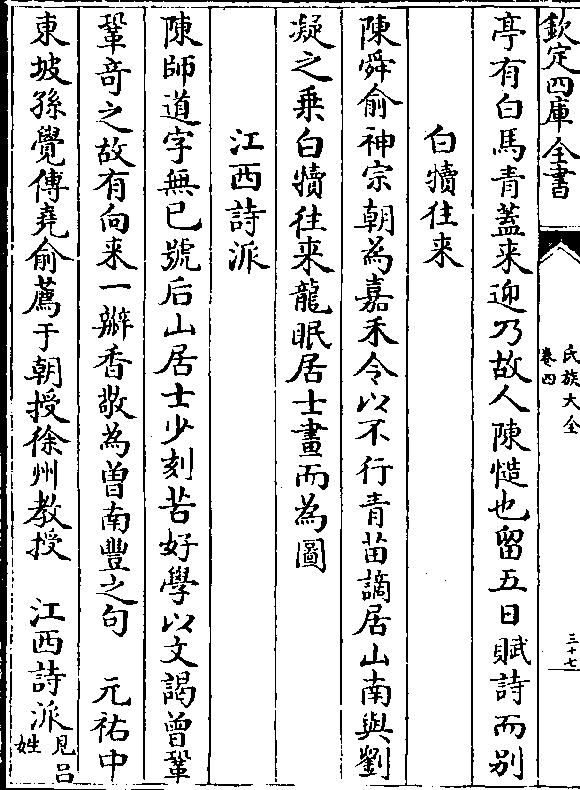 欽定四庫全書
氏族大全
卷四
三十七
亭有白馬青蓋来迎乃故人陳慥也留五日賦詩而别
白犢往来
陳舜俞神宗朝為嘉禾令以不行青苗謫居山南與劉
凝之乗白犢往来龍眠居士畫而為圖
江西詩派
陳師道字無已號后山居士少刻苦好學以文謁曾鞏
鞏竒之故有向来一瓣香敬為曽南豐之句　元祐中
東坡孫覺傳堯俞薦于朝授徐州教授　江西詩派見吕姓